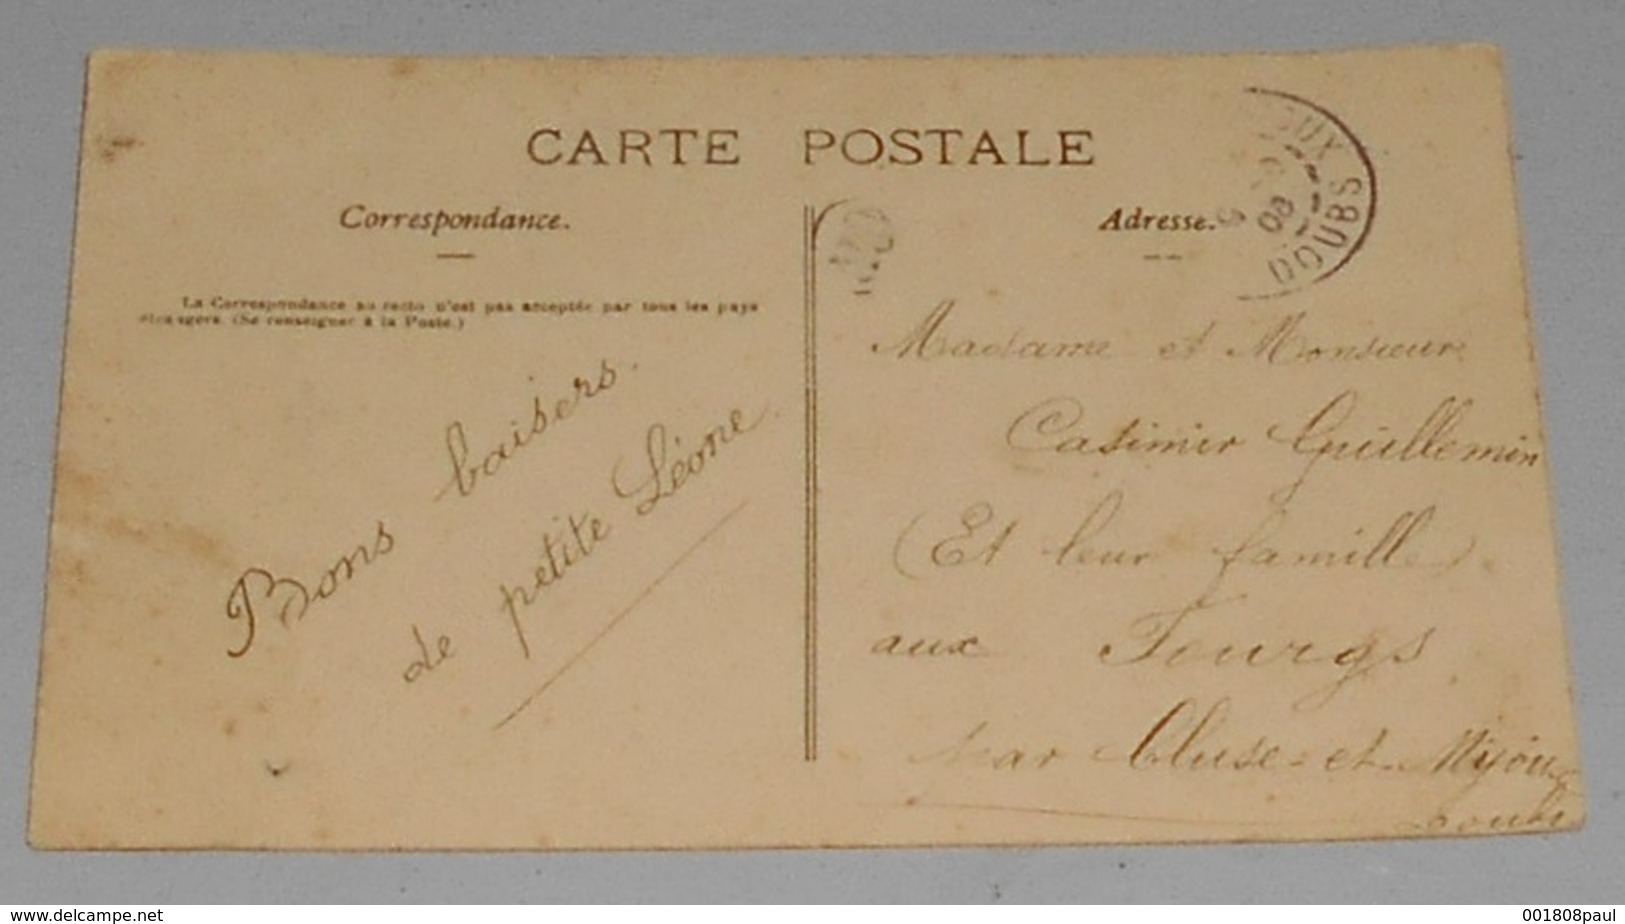 CARTE POSTALE
Correspondance.
La Correspondance au recto n'est pas acceptée par tous les pays
étrangers. (Se renseigner à la Poste.)
Bons baisers.
de petite Léone
Adresse.
OUX
08
DOUBS
Madame et Monsieur
Casimir Guillemin
(Et leur famille)
aux Fourgs
par Cluse-et-Mijoux
Doubs
www.delcampe.net
001808paul